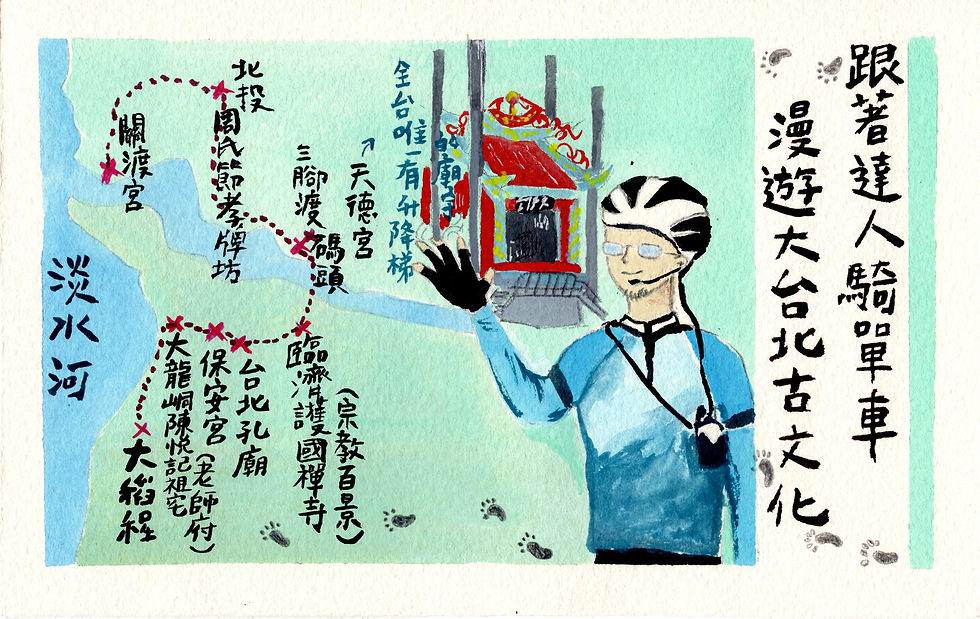 跟著達人騎單車
漫遊大台北古文化
全台唯一有升降梯
的廟宇
天德宮
三腳渡
碼頭
北投
周氏節孝牌坊
關渡宮
淡水河
(宗教百景)
臨濟護國禪寺
台北孔廟
保安宮(老師府)
大龍峒陳悅記祖宅
大稻埕